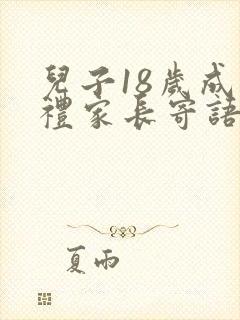 兒子18歲成
禮家長寄語
夏雨